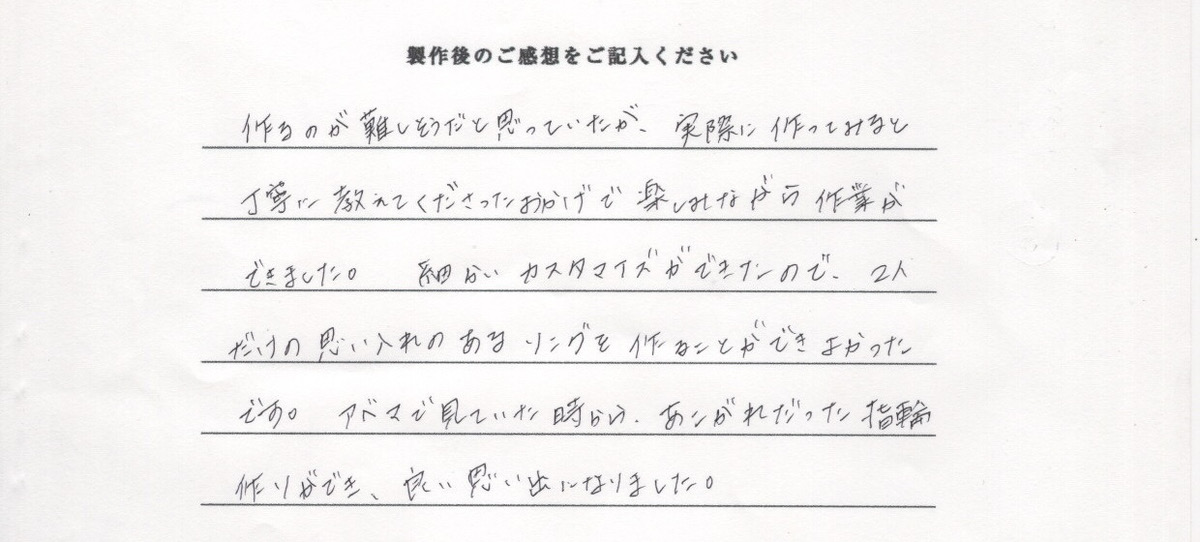 製作後のご感想をご記入ください
作るのが難しそうだと思っていたが、実際に作ってみると
丁寧に教えてくださったおかげで楽しみながら作業が
できました。 細かいカスタマイズができたので、2人
だけの思い入れのあるリングを作ることができよかった
です。 アベマで見ていた時から、あこがれだった指輪
作りができ、良い思い出になりました。